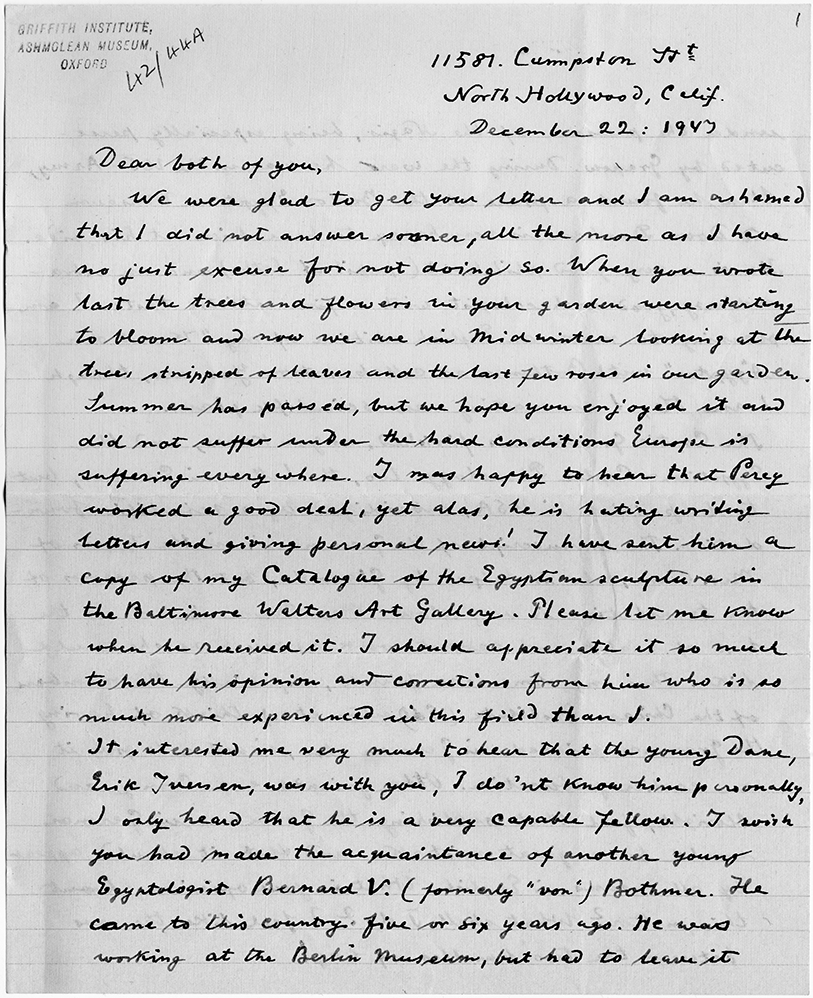 GRIFFITH INSTITUTE,
ASHMOLEAN MUSEUM,
OXFORD
42/44A
1
11581. Cumpston Stt
North Hollywood, Calif.
December 22: 1947
Dear both of you,
We were glad to get your letter and I am ashamed
that I did not answer sooner, all the more as I have
no just excuse for not doing so. When you wrote
last the trees and flowers in your garden were starting
to bloom and now we are in Midwinter looking at the
trees stripped of leaves and the last few roses in our garden.
Summer has passed, but we hope you enjoyed it and
did not suffer under the hard conditions Europe is
suffering everywhere. I was happy to hear that Percy
worked a good deal, yet alas, he is hating writing
letters and giving personal news! I have sent him a
copy of my Catalogue of the Egyptian sculpture in
the Baltimore Walters Art Gallery. Please let me know
when he received it. I should appreciate it so much
to have his opinion, and corrections from him who is so
much more experienced in this field than I.
It interested me very much to hear that the young Dane,
Erik Iversen, was with you, I do'nt know him personally,
I only heard that he is a very capable fellow. I wish
you had made the acquaintance of another young
Egyptologist Bernard V. (formerly "von") Bothmer. He
came to this country five or six years ago. He was
working at the Berlin Museum, but had to leave it